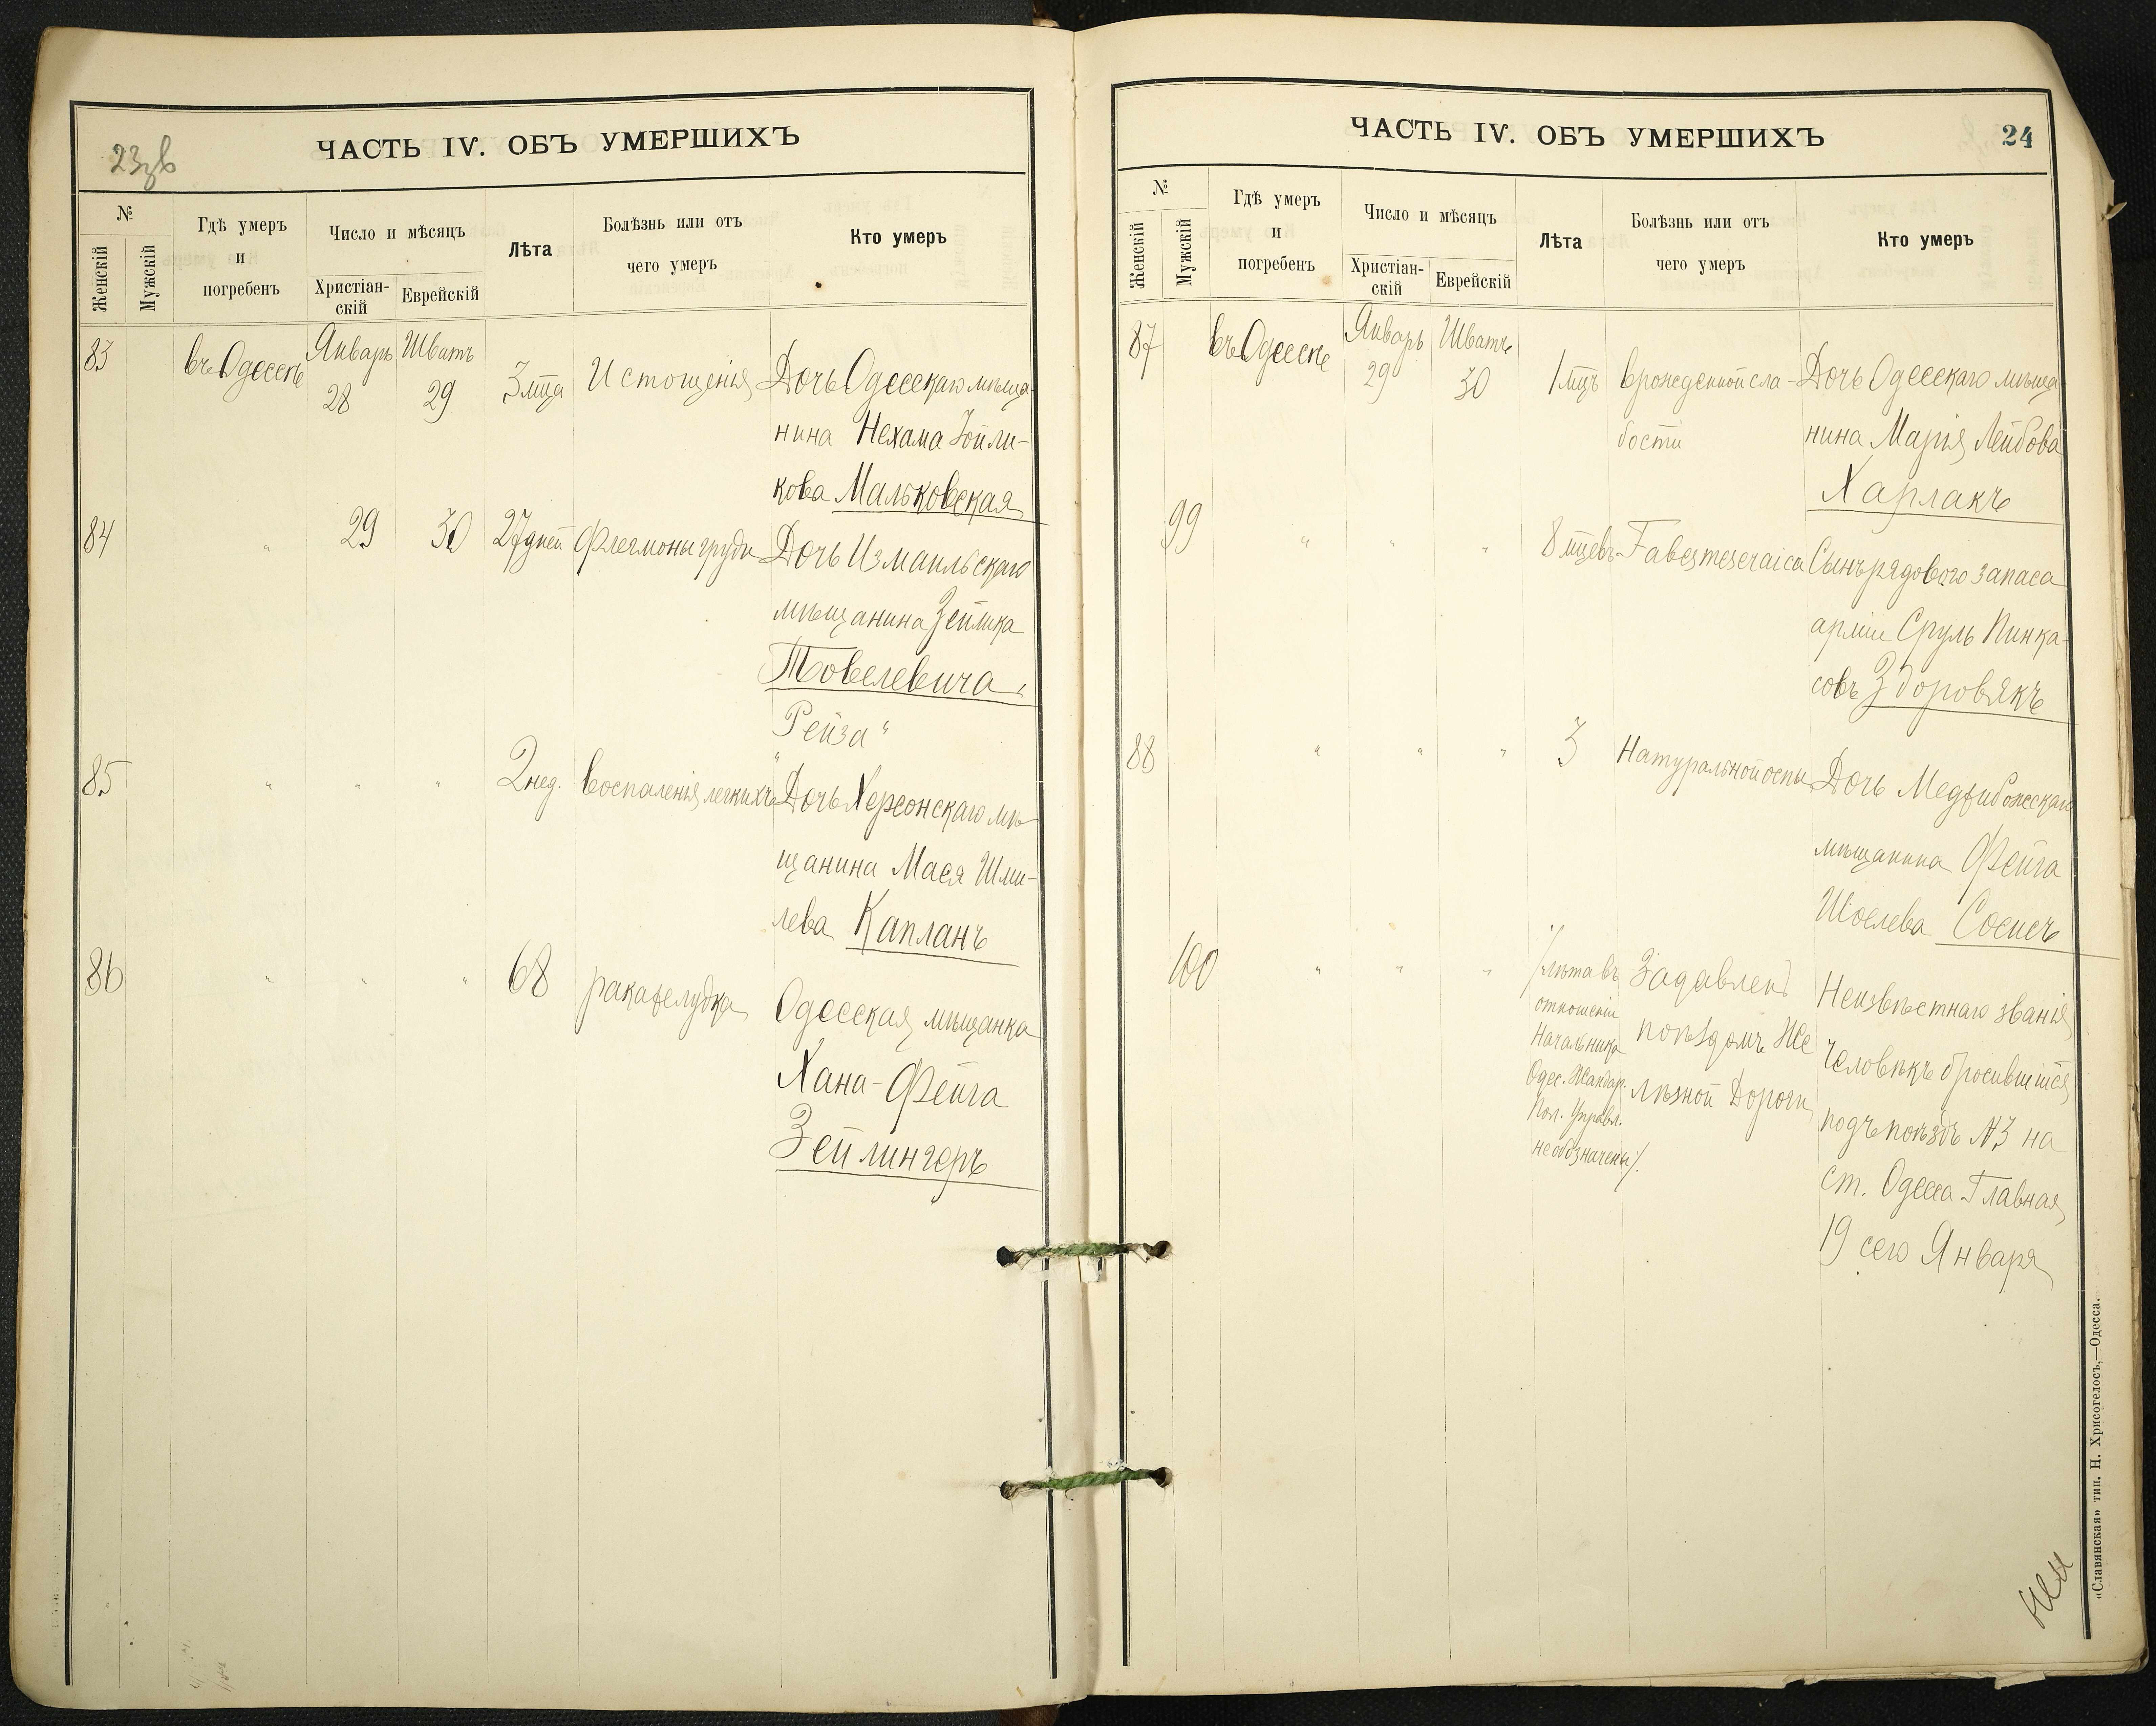 23 зв
ЧАСТЬ IV. ОБЪ УМЕРШИХЪ
№
Женскій
Мужскій
Гдѣ умеръ
и
погребенъ
Число и мѣсяцъ
Христіан-
скій
Еврейскій
Лѣта
Болѣзнь или отъ
чего умеръ
Кто умеръ
83 въ Одессѣ Январь 28 Шватъ 29 3 мца Истощенія Дочь Одесскаго мѣща-
нина Нехама Іойли-
кова Мальковская
84 " 29 30 27 дней Флегмоны груди Дочь Измаильскаго
мѣщанина Зейлика
Товелевича
"Рейза"
85 " " " 2 нед. Воспаленія легкихъ Дочь Херсонскаго мѣ-
щанина Мася Шми-
лева Капланъ
86 " " " 68 рака желудка Одесская мѣщанка
Хана-Фейга
Зейлингеръ
ЧАСТЬ IV. ОБЪ УМЕРШИХЪ
24
№
Женскій
Мужскій
Гдѣ умеръ
и
погребенъ
Число и мѣсяцъ
Христіан-
скій
Еврейскій
Лѣта
Болѣзнь или отъ
чего умеръ
Кто умеръ
87 въ Одессѣ Январь 29 Шватъ 30 1 мцъ Врожденной сла- Дочь Одесскаго мѣща-
бости нина Марія Лейбова
Харлакъ
99 " " " 8 мцевъ Tabes meseraica Сынъ рядового запаса
арміи Сруль Пинка-
совъ Здоровякъ
88 " " " 3 Натуральной оспы Дочь Меджибожскаго
мѣщанина Фейга
Шоелева Сосисъ
100 " " " /лѣта въ Задавленъ Неизвѣстнаго званія
отношеніи поѣздомъ Же человѣкъ бросившійся
Начальника лѣзной Дороги подъ поѣздъ №3 на
Одес. Жандар. ст. Одесса Главная
Пол. Управл. 19 сего Января
не обозначены/.
«Славянская» тип. Н. Хрисогелосъ,—Одесса.